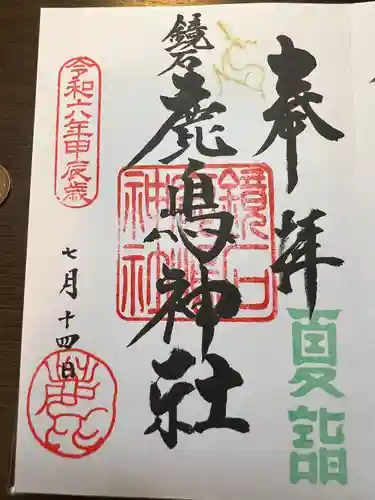 奉拝
夏詣
鏡石
鹿嶋神社
鏡石
鹿嶋
神社
令和六年甲辰歳
七月十四日
鹿